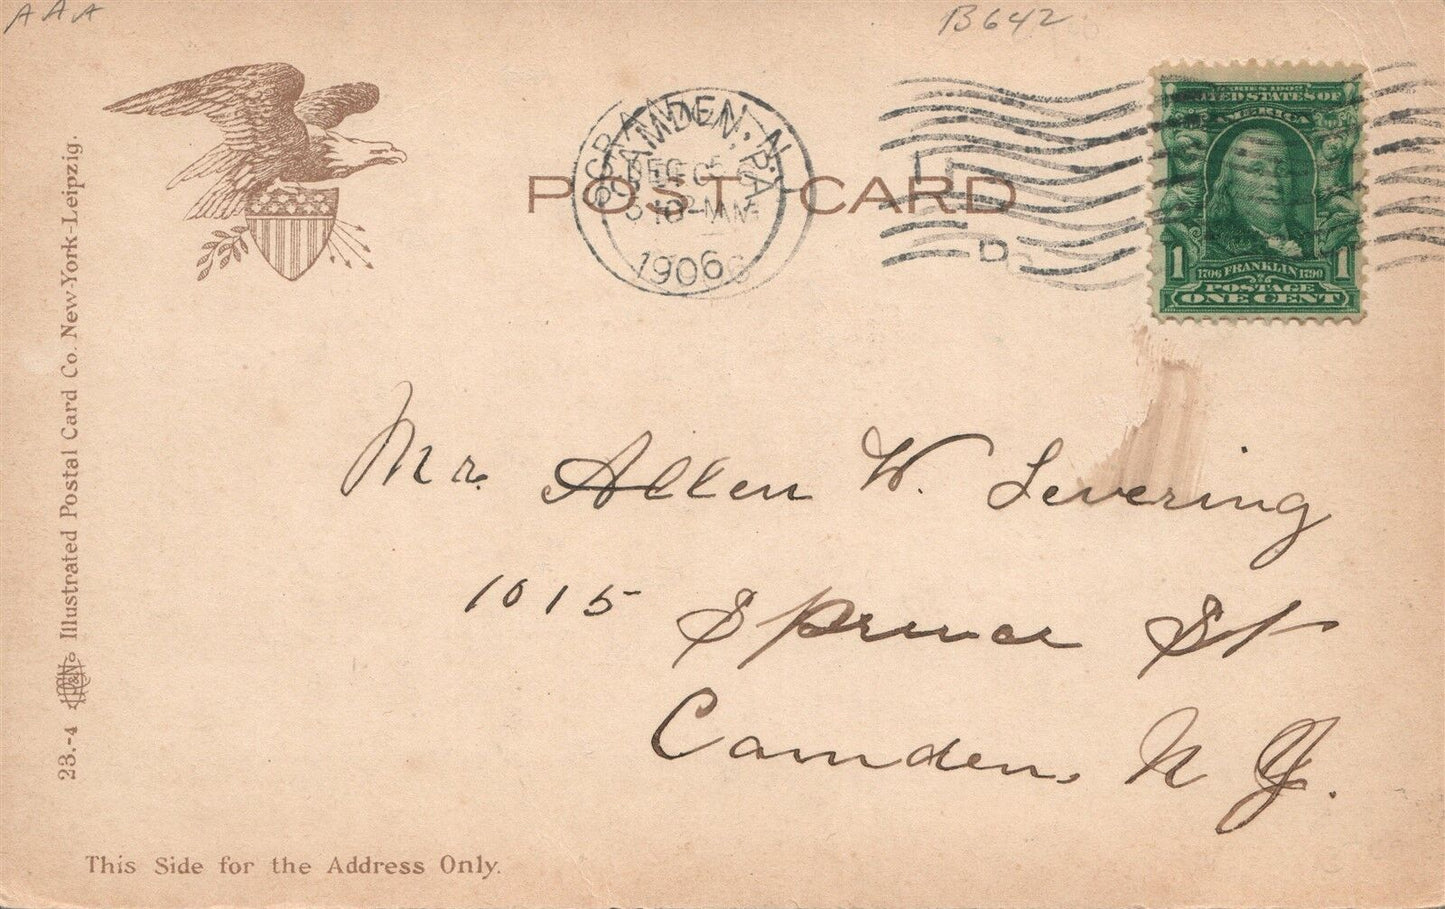 AAA
B642
POST CARD
1906
SERIES 1902
UNITED STATES OF
AMERICA
1 1706 FRANKLIN 1790 1
POSTAGE
ONE CENT
Mr. Allen W. Levering
1015 Spruce St
Camden, N. J.
23.-4 Illustrated Postal Card Co. New-York-Leipzig.
This Side for the Address Only.